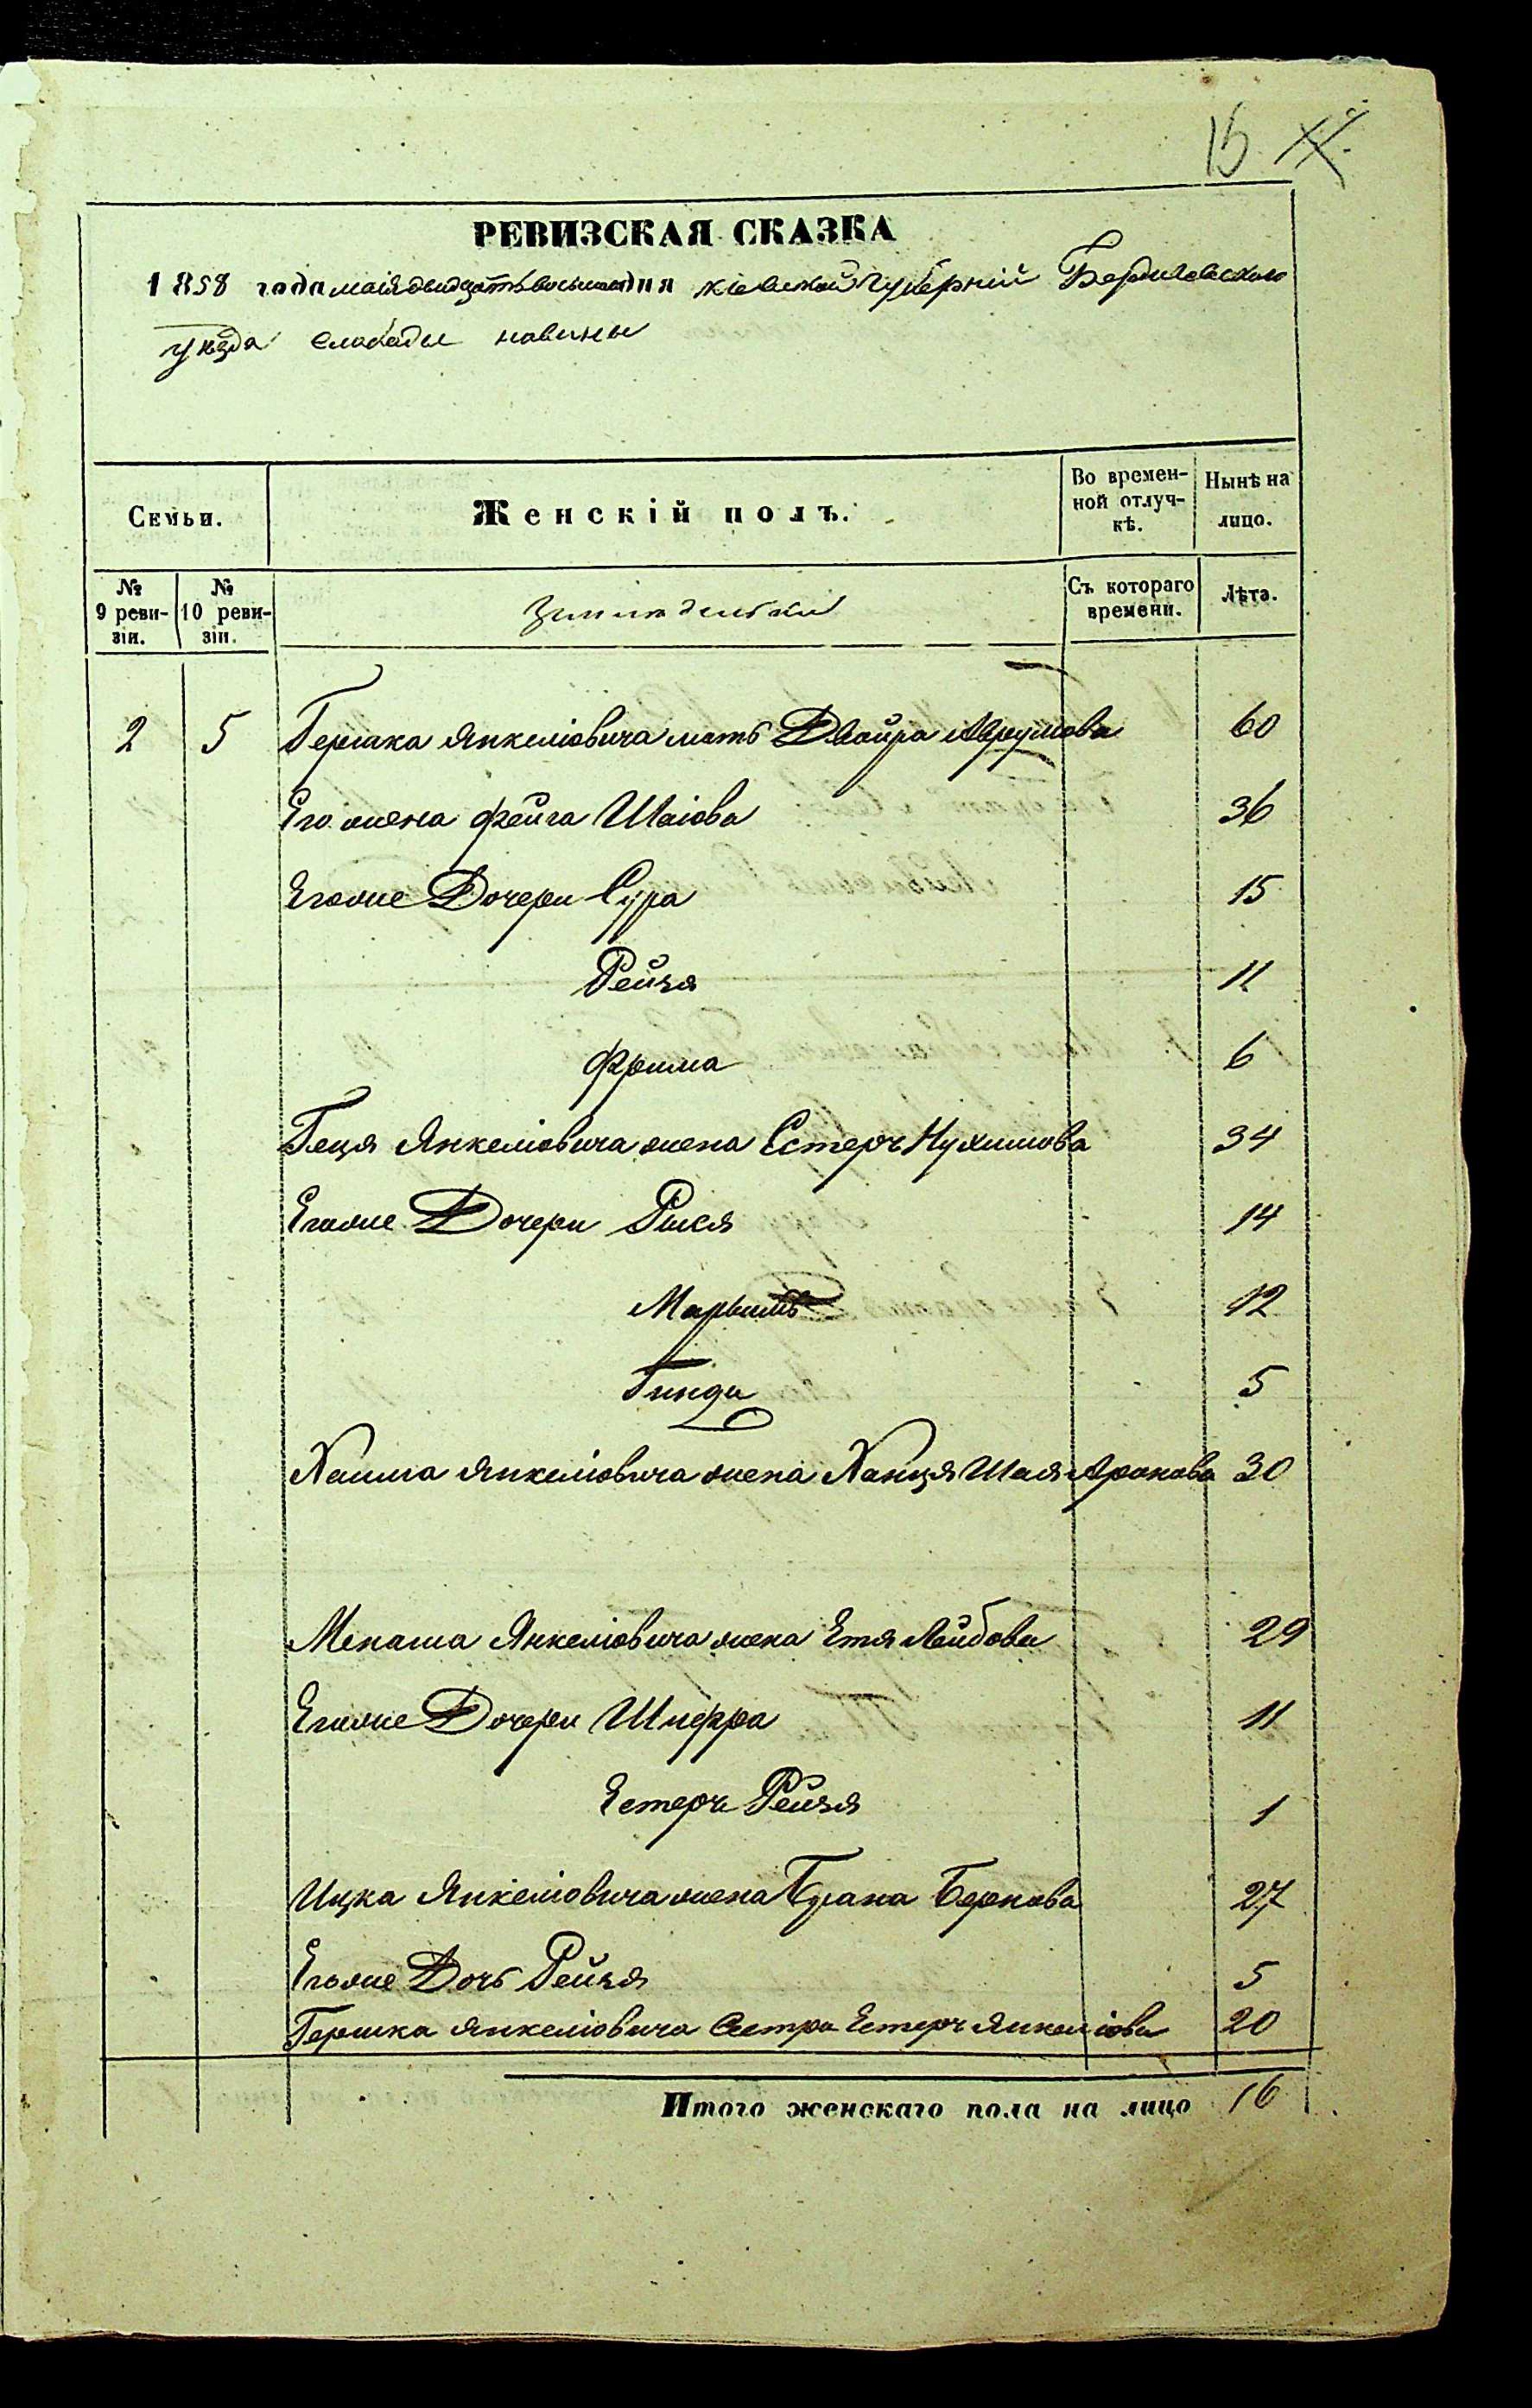 15
РЕВИЗСКАЯ СКАЗКА
1858 года маія двидцать восьмого дня Кіевской губерній Бердичевского
уѣзда слабады навины
Семьи.
Женскій полъ.
Во времен-
ной отлуч-
кѣ.
Нынѣ на
лицо.
№
9 реви-
зіи.
№
10 реви-
зіи.
Съ котораго
времени.
Лѣта.
2 5 Гершка Янкеліовича мать Двойра Аврумова 60
Его жена Фейга Шаіова 36
Егоже Дочери Сура 15
Рейзя 11
Фрима 6
Геця Янкеліовича жена Естеръ Нухимова 34
Егоже Дочери Рися 14
Марьимъ 12
Гинда 5
Хаима Янкеліовича жена Ханця Шая Аронова 30
Менаша Янкеліовича жена Етя Лейбова 29
Егоже Дочери Шифра 11
Естеръ Рейзя 1
Ицка Янкеліовича жена Беркова 27
Егоже Дочь Рейзя 5
Гершка Янкеліовича Сестра Естеръ Янкеліова 20
Итого женскаго пола на лицо 16